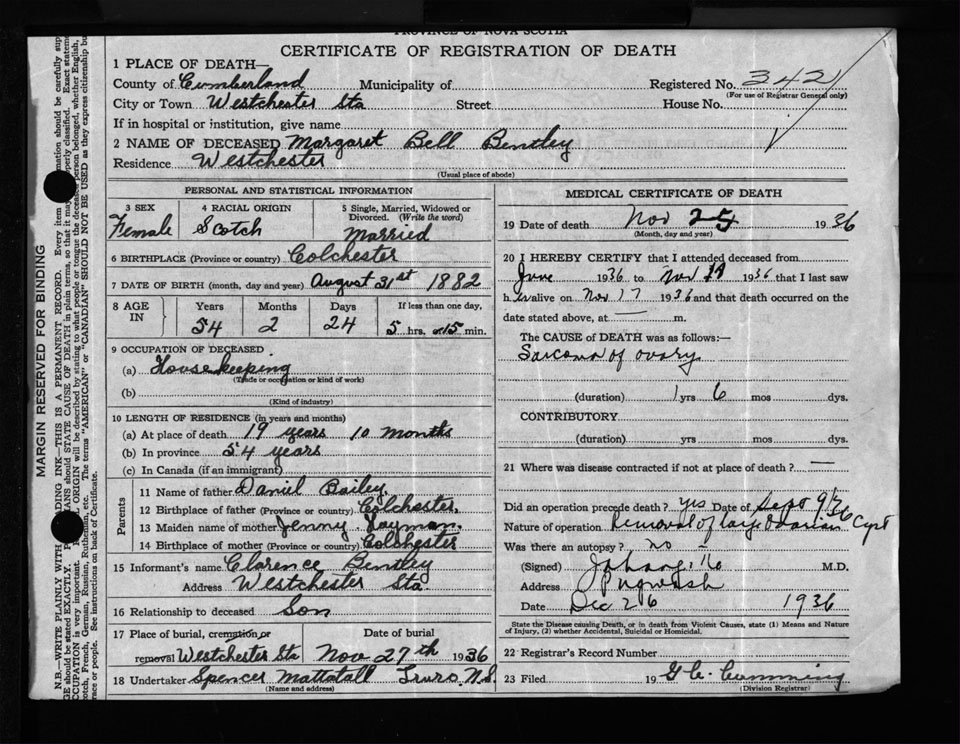 PROVINCE OF NOVA SCOTIA
CERTIFICATE OF REGISTRATION OF DEATH
1 PLACE OF DEATH—
County of Cumberland Municipality of Registered No. 342
(For use of Registrar General only)
City or Town Westchester Sta Street House No.
If in hospital or institution, give name
2 NAME OF DECEASED Margaret Bell Bentley
Residence Westchester
(Usual place of abode)
PERSONAL AND STATISTICAL INFORMATION
3 SEX 4 RACIAL ORIGIN 5 Single, Married, Widowed or Divorced. (Write the word)
Female Scotch Married
6 BIRTHPLACE (Province or country) Colchester
7 DATE OF BIRTH (month, day and year) August 31st 1882
8 AGE IN Years Months Days If less than one day,
54 2 24 5 hrs. or 15 min.
9 OCCUPATION OF DECEASED
(a) Housekeeping
(Trade or occupation or kind of work)
(b)
(Kind of industry)
10 LENGTH OF RESIDENCE (in years and months)
(a) At place of death 19 years 10 months
(b) In province 54 years
(c) In Canada (if an immigrant)
Parents
11 Name of father Daniel Bailey
12 Birthplace of father (Province or country) Colchester
13 Maiden name of mother Jenny Layman
14 Birthplace of mother (Province or country) Colchester
15 Informant's name Clarence Bentley
Address Westchester Sta.
16 Relationship to deceased Son
17 Place of burial, cremation or Date of burial
removal Westchester Sta Nov 27th 1936
18 Undertaker Spencer Mattatall Truro, N.S.
(Name and address)
MEDICAL CERTIFICATE OF DEATH
19 Date of death Nov 25 1936
(Month, day and year)
20 I HEREBY CERTIFY that I attended deceased from
June 1936 to Nov 19 1936 that I last saw
her alive on Nov 17 1936 and that death occurred on
date stated above, at — m.
The CAUSE of DEATH was as follows:—
Sarcoma of ovary
(duration) 1 yrs 6 mos dys.
CONTRIBUTORY
(duration) yrs mos dys.
21 Where was disease contracted if not at place of death? —
Did an operation precede death? yes Date of Sept 9/36
Nature of operation Removal of large Ovarian Cyst
Was there an autopsy? no
(Signed) M.D.
Address Pugwash
Date Dec 26 1936
State the Disease causing Death, or in death from Violent Causes, state (1) Means and Nature
of Injury, (2) whether Accidental, Suicidal or Homicidal.
22 Registrar's Record Number
23 Filed 19 G.C. Cumming
(Division Registrar)
MARGIN RESERVED FOR BINDING
N.B.—WRITE PLAINLY WITH ADING INK—THIS IS A PERMANENT RECORD. Every item mation should be carefully sup
GE should be stated EXACTLY. IANS should STATE CAUSE OF DEATH in plain terms, so that it may perly classified. Exact stateme
CCUPATION is very important. ORIGIN will be described by stating to what people or tongue the deceas person belonged, whether English,
cotch, French, German, Russian, Ruthenian, etc. The terms "AMERICAN" or "CANADIAN" SHOULD NOT BE USED as they express citizenship bu
race or people. See instructions on back of Certificate.